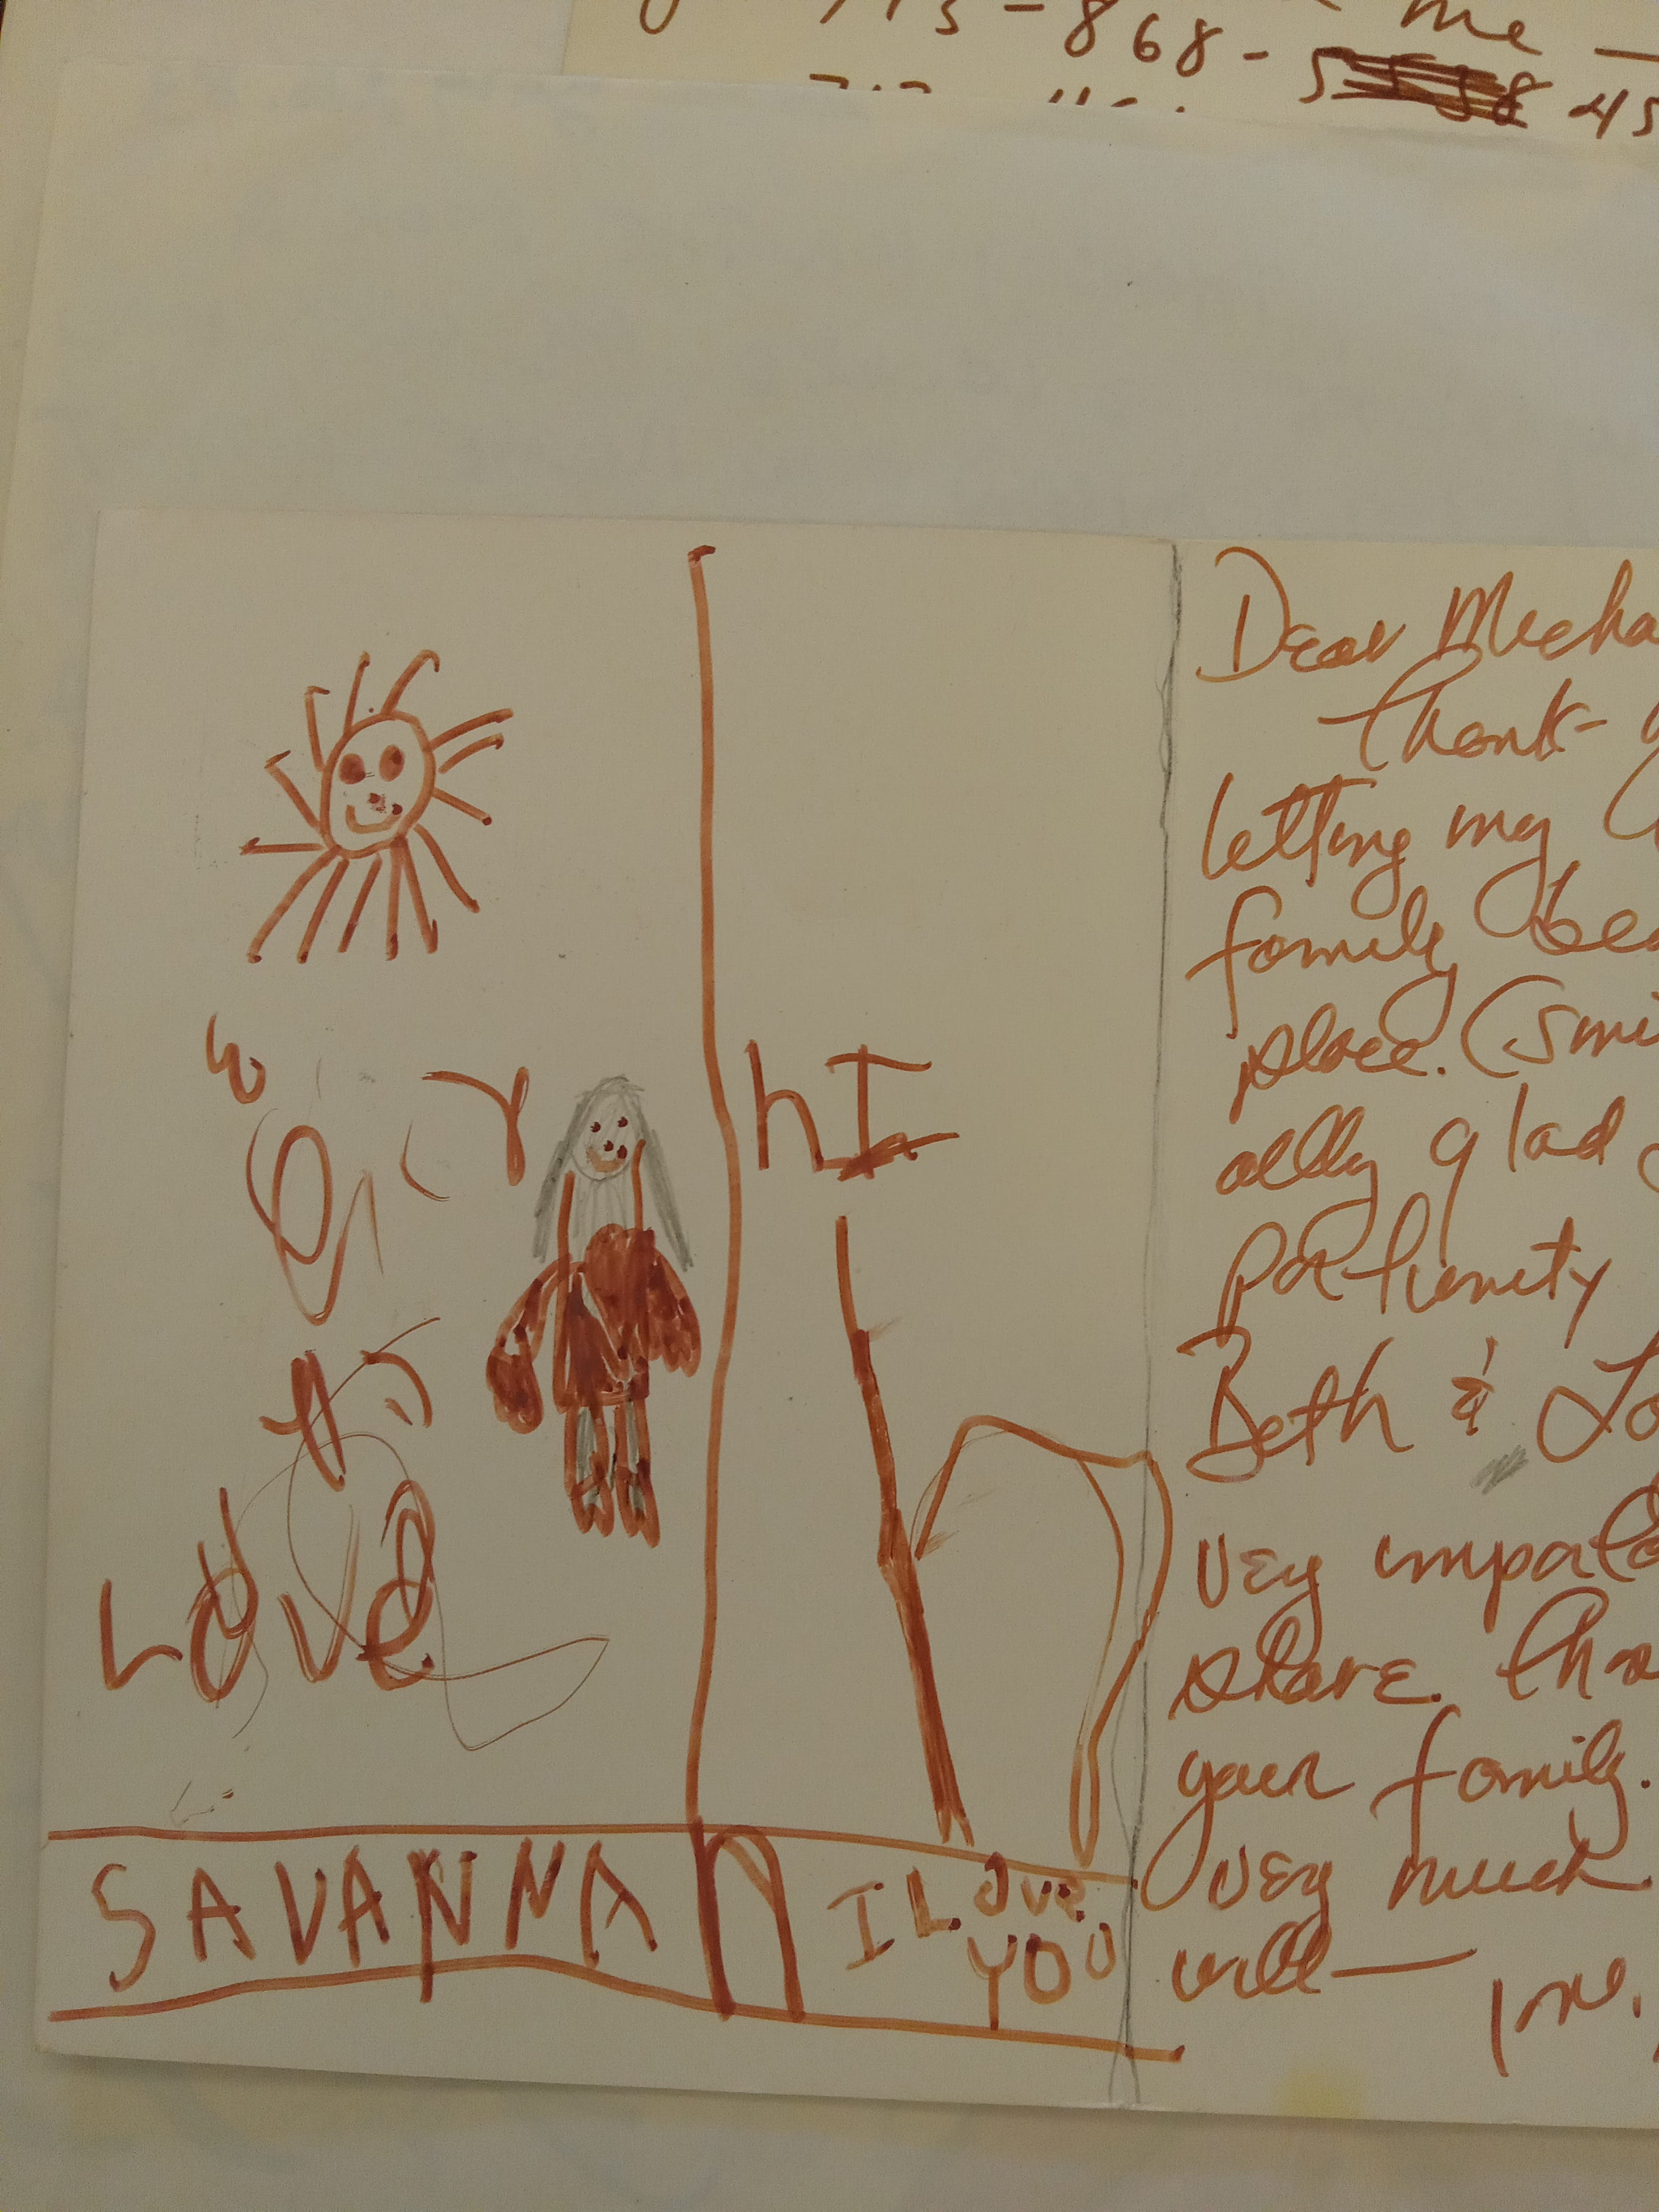 me —
713-868-5 45
hI
Love
SAVANNA
I Love
YOU
Dear Micha
Thank-
letting my
family bea
place. (smi
ally glad
portunity
Beth & Lo
very importa
share. Tha
your family.
very much
will—